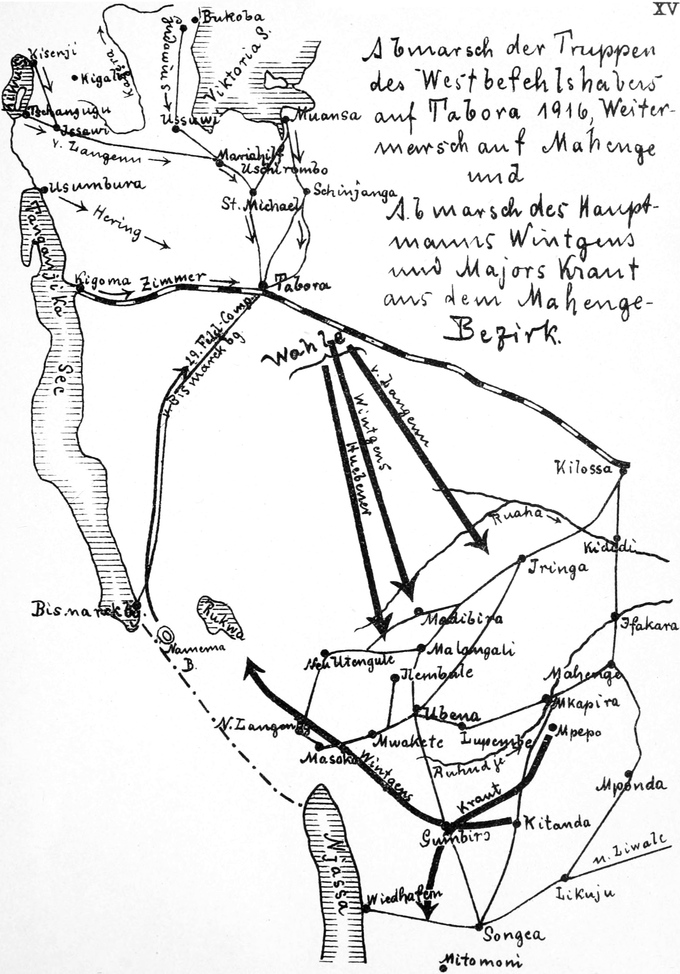 XV
Abmarsch der Truppen
des Westbefehlshabers
auf Tabora 1916, Weiter-
marsch auf Mahenge
und
Abmarsch des Haupt-
manns Wintgens
und Majors Kraut
aus dem Mahenge-
Bezirk.
Bukoba
Kisenji
Kigali
Kagera
Gudowius
Viktoria S.
Kiwu S.
Tschangugu
Issawi
Ussuwi
Muansa
v. Langenn
Mariahilf
Uschirombo
Usumbura
St. Michael
Schinjanga
Hering
Tanganjika
See
Kigoma
Zimmer
Tabora
29. Feld-Comp.
v. Bismarckbg.
Wahle
v. Langenn
Wintgens
Huebener
Kilossa
Ruaha
Kidodi
Iringa
Bismarckbg.
Rukwa
Namema
B.
Madibira
Ifakara
Neu Utengule
Malangali
Ilembule
Mahenge
Mkapira
N. Langenbg
Ubena
Lupembe
Mpepo
Mwakete
Masoko
Ruhudje
Wintgens
Kraut
Mponda
Gumbiro
Kitanda
Njassa
n. Liwale
Wiedhafen
Likuju
Songea
Mitomoni